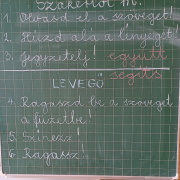 Szakkörön m.
1. Olvasd el a szöveget!
2. Húzd alá a lényeget!
3. Jegyzetelj! együtt
segíts
LEVEGŐ
4. Ragaszd be a szöveget
a füzetbe!
5. Színezz!
6. Ragassz!